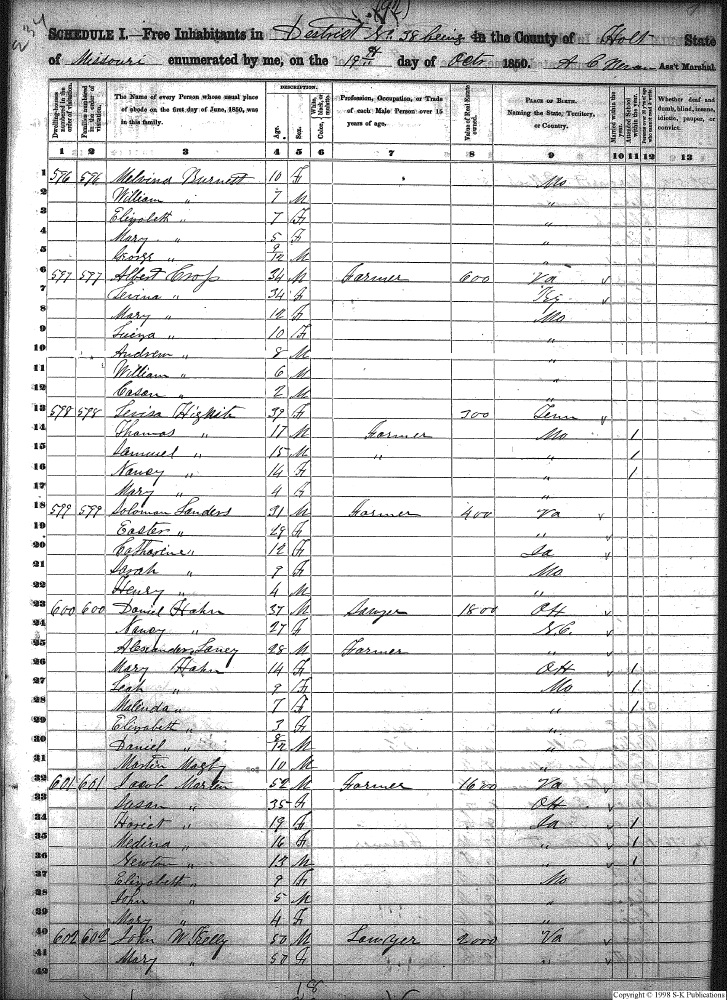 (92)
SCHEDULE I.—Free Inhabitants in District No 38 being in the County of Holt State
of Missouri enumerated by me, on the 19th day of Octr 1850. Ass't Marshal.
Dwelling-houses numbered in the order of visitation.
Families numbered in the order of visitation.
The Name of every Person whose usual place of abode on the first day of June, 1850, was in this family.
DESCRIPTION.
Age.
Sex.
White, black, or mulatto.
Color
Profession, Occupation, or Trade of each Male Person over 15 years of age.
Value of Real Estate owned.
PLACE OF BIRTH. Naming the State, Territory, or Country.
Married within the year.
Attended School within the year.
Whether deaf and dumb, blind, insane, idiotic, pauper, or convict.
1 2 3 4 5 6 7 8 9 10 11 12 13
1 596 596 Melvina Burnett 10 F Mo
2 William " 7 M "
3 Elizabeth " 7 F "
4 Mary " 5 F "
5 George " 9/12 M "
6 597 597 Albert Cross 34 M Farmer 600 Va
7 Levina " 34 F Ky
8 Mary " 12 F Mo
9 " 10 F "
10 Andrew " 8 M "
11 William " 6 M "
12 Cason " 2 M "
13 598 598 Levisa 39 F 300 Tenn
14 Thomas " 17 M Farmer Mo 1
15 Samuel " 15 M " " 1
16 Nancy " 14 F " 1
17 Mary " 4 F "
18 599 599 Soloman Sanders 31 M Farmer 400 Va
19 Easter " 29 F "
20 Catharine " 12 F Ia
21 Sarah " 9 F Mo
22 Henry " 4 M "
23 600 600 Daniel Hahn 37 M Sawyer 1800 OH
24 Nancy " 27 F N.C.
25 Alexander Laney 28 M Farmer "
26 Mary Hahn 14 F OH 1
27 Leah " 9 F Mo 1
28 Malinda " 7 F " 1
29 Elizabeth " 3 F "
30 Daniel " /12 M "
31 Martin 10 M "
32 601 601 Jacob Martin 52 M Farmer 1600 Va
33 Susan " 35 F OH
34 Hariet " 19 F Ia 1
35 Medina " 16 F " 1
36 Newton " 13 M " 1
37 Elizabeth " 9 F Mo
38 John " 5 M "
39 Mary " 4 F "
40 602 602 John W. Kelly 50 M Lawyer 2000 Va
41 Mary " 50 F "
42
18
Copyright © 1998 S-K Publications